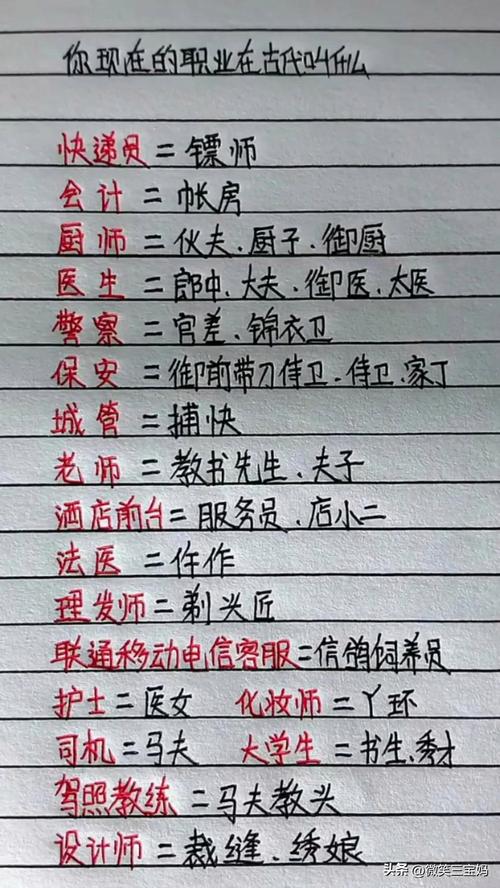 你现在的职业在古代叫什么
快递员=镖师
会计=帐房
厨师=伙夫、厨子、御厨
医生=郎中、大夫、御医、太医
警察=官差、锦衣卫
保安=御前带刀侍卫、侍卫、家丁
城管=捕快
老师=教书先生、夫子
酒店前台=服务员、店小二
法医=仵作
理发师=剃头匠
联通移动电信客服=信鸽饲养员
护士=医女 化妆师=丫环
司机=马夫 大学生=书生、秀才
驾照教练=马夫教头
设计师=裁缝、绣娘
头条 @微笑三宝妈